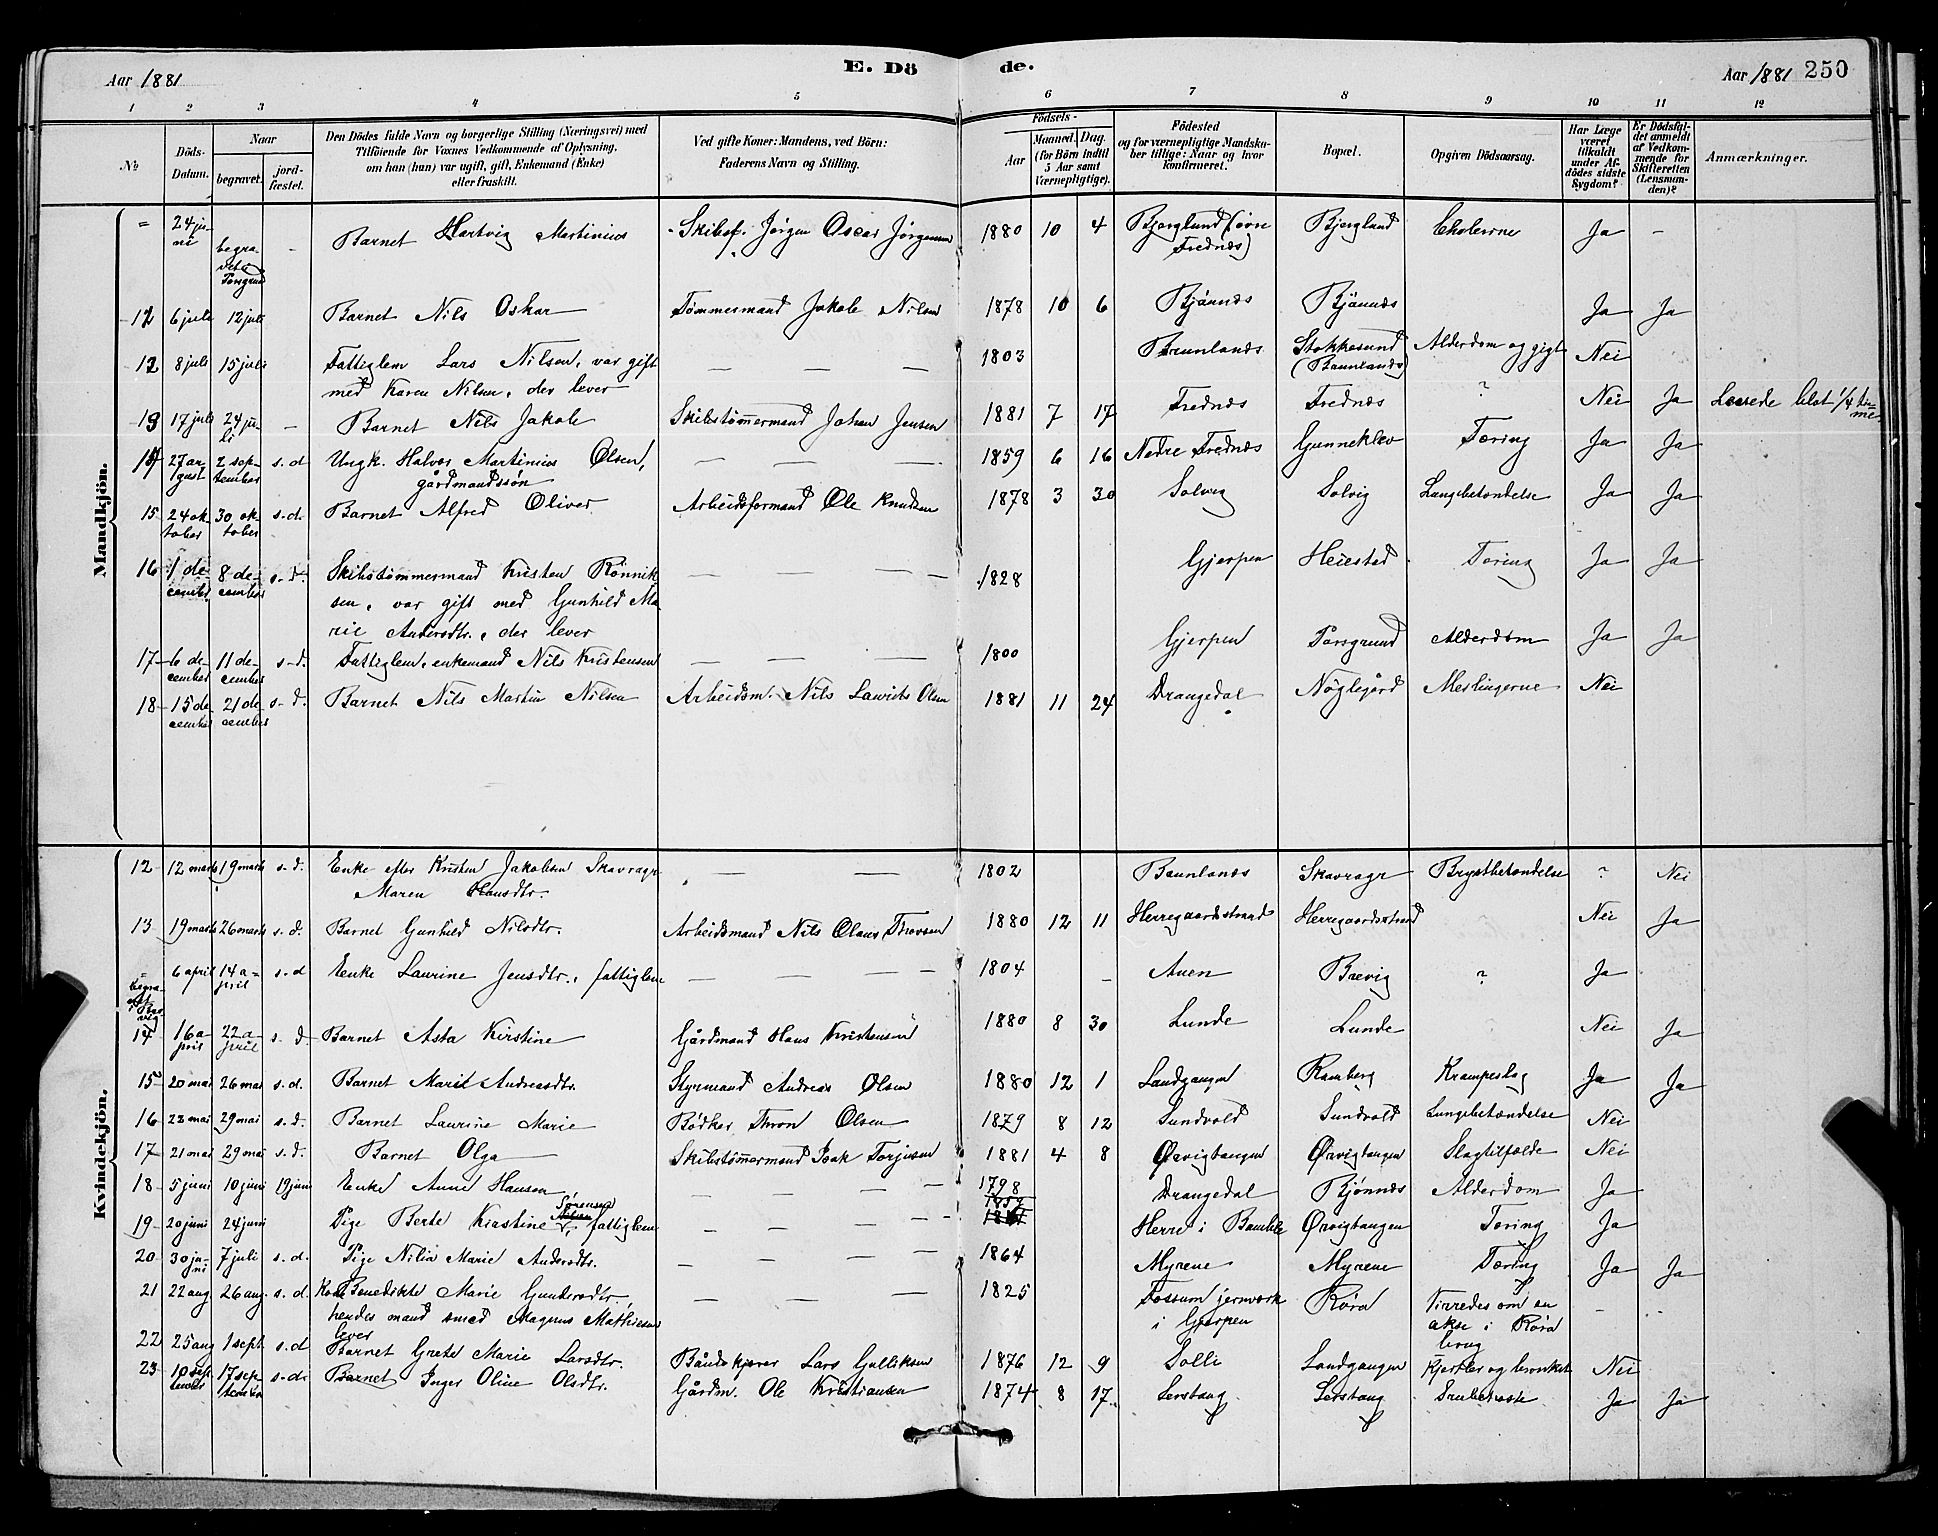 Aar 1881
E. Dö de.
Aar 1881 250
1 2 3 4 5 6 7 8 9 10 11 12
No
Döds-Datum.
Naar
begravet.
jord-fæstet.
Den Dödes fulde Navn og borgerlige Stilling (Næringsvei) med
Tilföiende for Voxnes Vedkommende af Oplysning,
om han (hun) var ugift, gift, Enkemand (Enke)
eller fraskilt.
Ved gifte Koner: Mandens, ved Börn:
Faderens Navn og Stilling.
Födsels-
Aar
Maaned. Dag.
(for Börn indtil
5 Aar samt
Værnepligtige).
Födested
og for værnepligtige Mandska-
ber tillige: Naar og hvor
konfirmeret.
Bopæl.
Opgiven Dödsaarsag.
Har Læge
været
tilkaldt
under Af-
dödes sidste
Sygdom?
Er Dödsfal-
det anmeldt
af Vedkom-
mende for
Skifteretten
(Lensman-
den)?
Anmærkninger.
Mandkjön.
= 24 juni begravet i Porsgrund - Barnet Hartvig Martinius Skibsf. Jørgen Oscar Jørgensen 1880 10 4 Bjerglund (øvre Frednæs) Bjerglund Cholerine Ja -
12 6 juli 12 juli Barnet Nils Oskar Tømmermand Jakob Nilsen 1878 10 6 Bjønnæs Bjønnæs Ja Ja
12 8 juli 15 juli Fattiglem Lars Nilsen, var gift — — — 1803 Brunlanæs Stokkesund Alderdom og gigt Nei
med Karen Nilsen, der lever
13 17 juli 24 juli - Barnet Nils Jakob Skibstømmermand Johan Jensen 1881 7 17 Frednæs Frednæs ? Nei Ja Levede blot 1/4 time
14 27 august 2 september s.d Ungk. Halvor Martinius Olsen, — — — 1859 6 16 Nedre Frednæs Gunneklev Tæring Ja Ja
gårdmandssøn
15 24 oktober 30 oktober s.d. Barnet Alfred Oliver Arbeidsformand Ole Knudsen 1878 3 30 Solvig Solvig Lungebetændelse Ja Ja
16 1 december 8 december s.d. Skibstømmermand Kristen Rønnik- — — 1828 Gjerpen Heiestad Tæring Ja Ja
sen, var gift med Gunhild Ma-
rie Andersdtr., der lever
17 6 december 11 december s.d. Fattiglem, enkemand Nils Kristensen — — — 1800 Gjerpen Porsgrund Alderdom Ja Ja
18 15 december 21 december s.d. Barnet Nils Martin Nilsen Arbeidsm. Nils Laurits Olsen 1881 11 24 Drangedal Nøglegård Meslingerne Nei
Kvindekjön.
12 12 marts 19 marts s.d. Enke efter Kristen Jakobsen Skavrager — — 1802 Skavrager Brystbetændelse ? Nei
Maren Hansdtr.
13 19 marts 26 marts s.d. Barnet Gunhild Nilsdtr. Arbeidsmand Nils Olaus Thovsen 1880 12 11 Herregaardsstrand Herregaardsstrand Nei Ja
= 6 april 14 april s.d Enke Laurine Jensdtr., fattiglem — — — 1804 - Auen Brevig ? Ja
14 16 april 22 april s.d Barnet Asta Kirstine Gårdmand Hans Kristensen 1880 8 30 Lunde Lunde Nei Ja
15 20 mai 26 mai s.d. Barnet Marie Andreasdtr. Styrmand Andreas Olsen 1880 12 1 Landgangen Ramberg Krampeslag Ja Ja
16 23 mai 29 mai s.d. Barnet Laurine Marie Bødker Thron Olsen 1879 8 12 Sundvold Sundvold Lungebetændelse Nei
17 21 mai 29 mai s.d. Barnet Olga Skibstømmermand Isak Torjusen 1881 4 8 Ørvigtangen Ørvigtangen Slagtilfælde Nei
18 5 juni 10 juni 19 juni Enke Anne Hansen — — — 1798 Drangedal Bjønnæs Alderdom Ja
19 20 juni 24 juni Pige Berte Kirstine Sørensen, fattiglem — — — 1859 Herre i Bamble Ørvigtangen Tæring Ja
20 30 juni 7 juli s.d. Pige Nilia Marie Andersdtr. — — — 1864 Myrene Myrene Tæring Ja Ja
21 22 aug 26 aug. s.d Kone Benedikte Marie Gundersdtr, — — — 1825 Fossum jernværk i Gjerpen Røra akse i Røra brug - -
hendes mand smed Magnus Mathiesen
lever
22 25 aug 1 sept. s.d Barnet Grete Marie Larsdtr. Båndskjærer Lars Gulliksen 1876 12 9 Dolli Landgangen Kjertler og bronket Nei
23 10 september 17 september s.d. Barnet Inger Oline Olsdtr. Gårdm. Ole Kristiansen 1874 8 17 Lerstang Lerstang Strubehoste Ja Ja